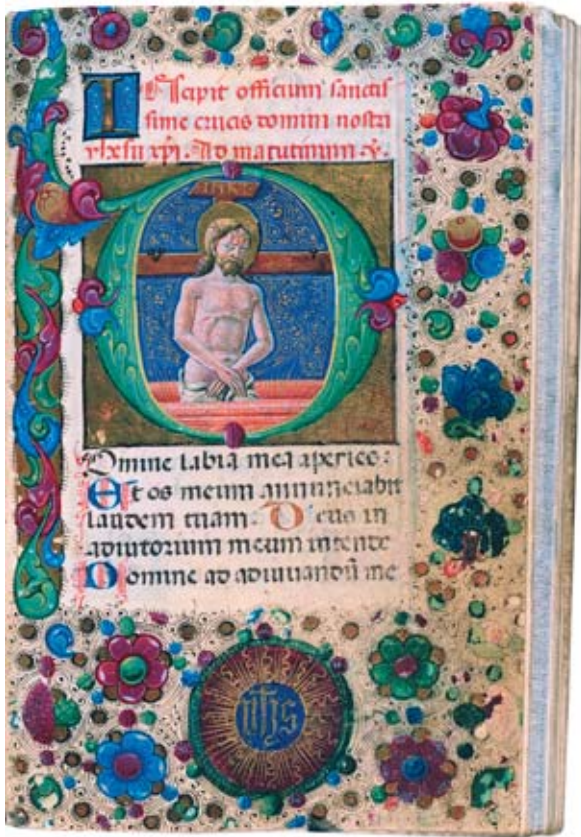 INcipit officium sanctis
sime crucis domini nostri
yhesu xpi. Ad matutinum
INRI
Domine labia mea aperies:
Et os meum annunciabit
laudem tuam. Deus in
adiutorium meum intende
Domine ad adiuuandū me
yhs